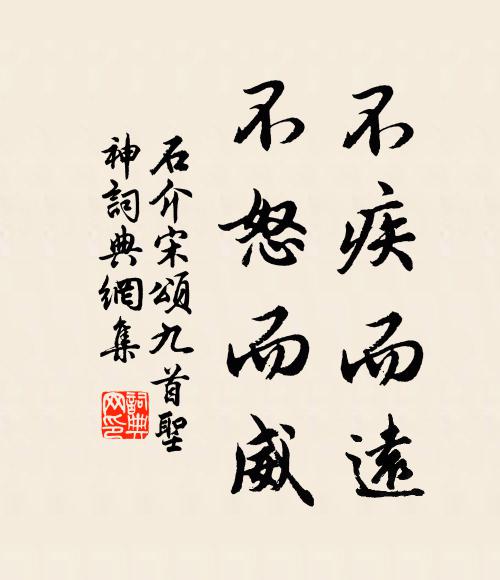 不疾而遠
不怒而威
石介宋頌九首聖
神詞典網集
詞典
网印